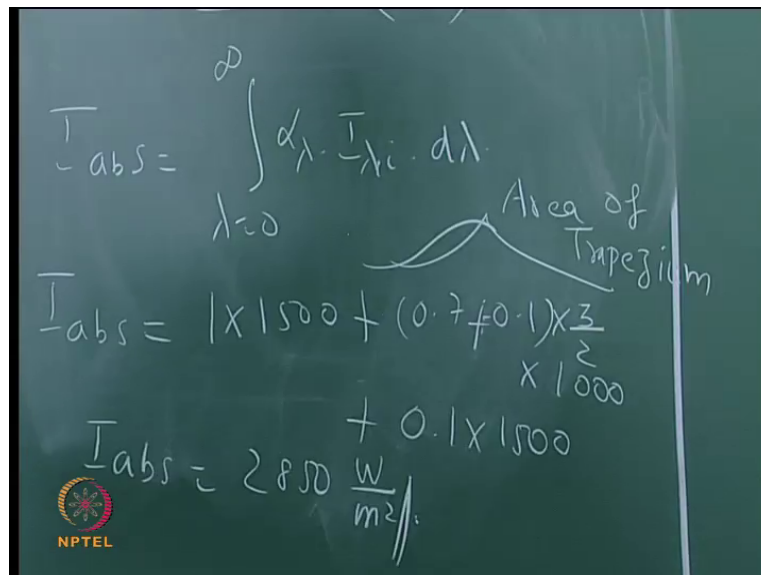 ∞
I abs = ∫ α λ . I λi . dλ
λ=0
Area of
Trapezium
I abs = 1 x 1500 + (0.7+0.1) x 3/2
x 1000
+ 0.1 x 1500
I abs = 2850 W/m²
NPTEL